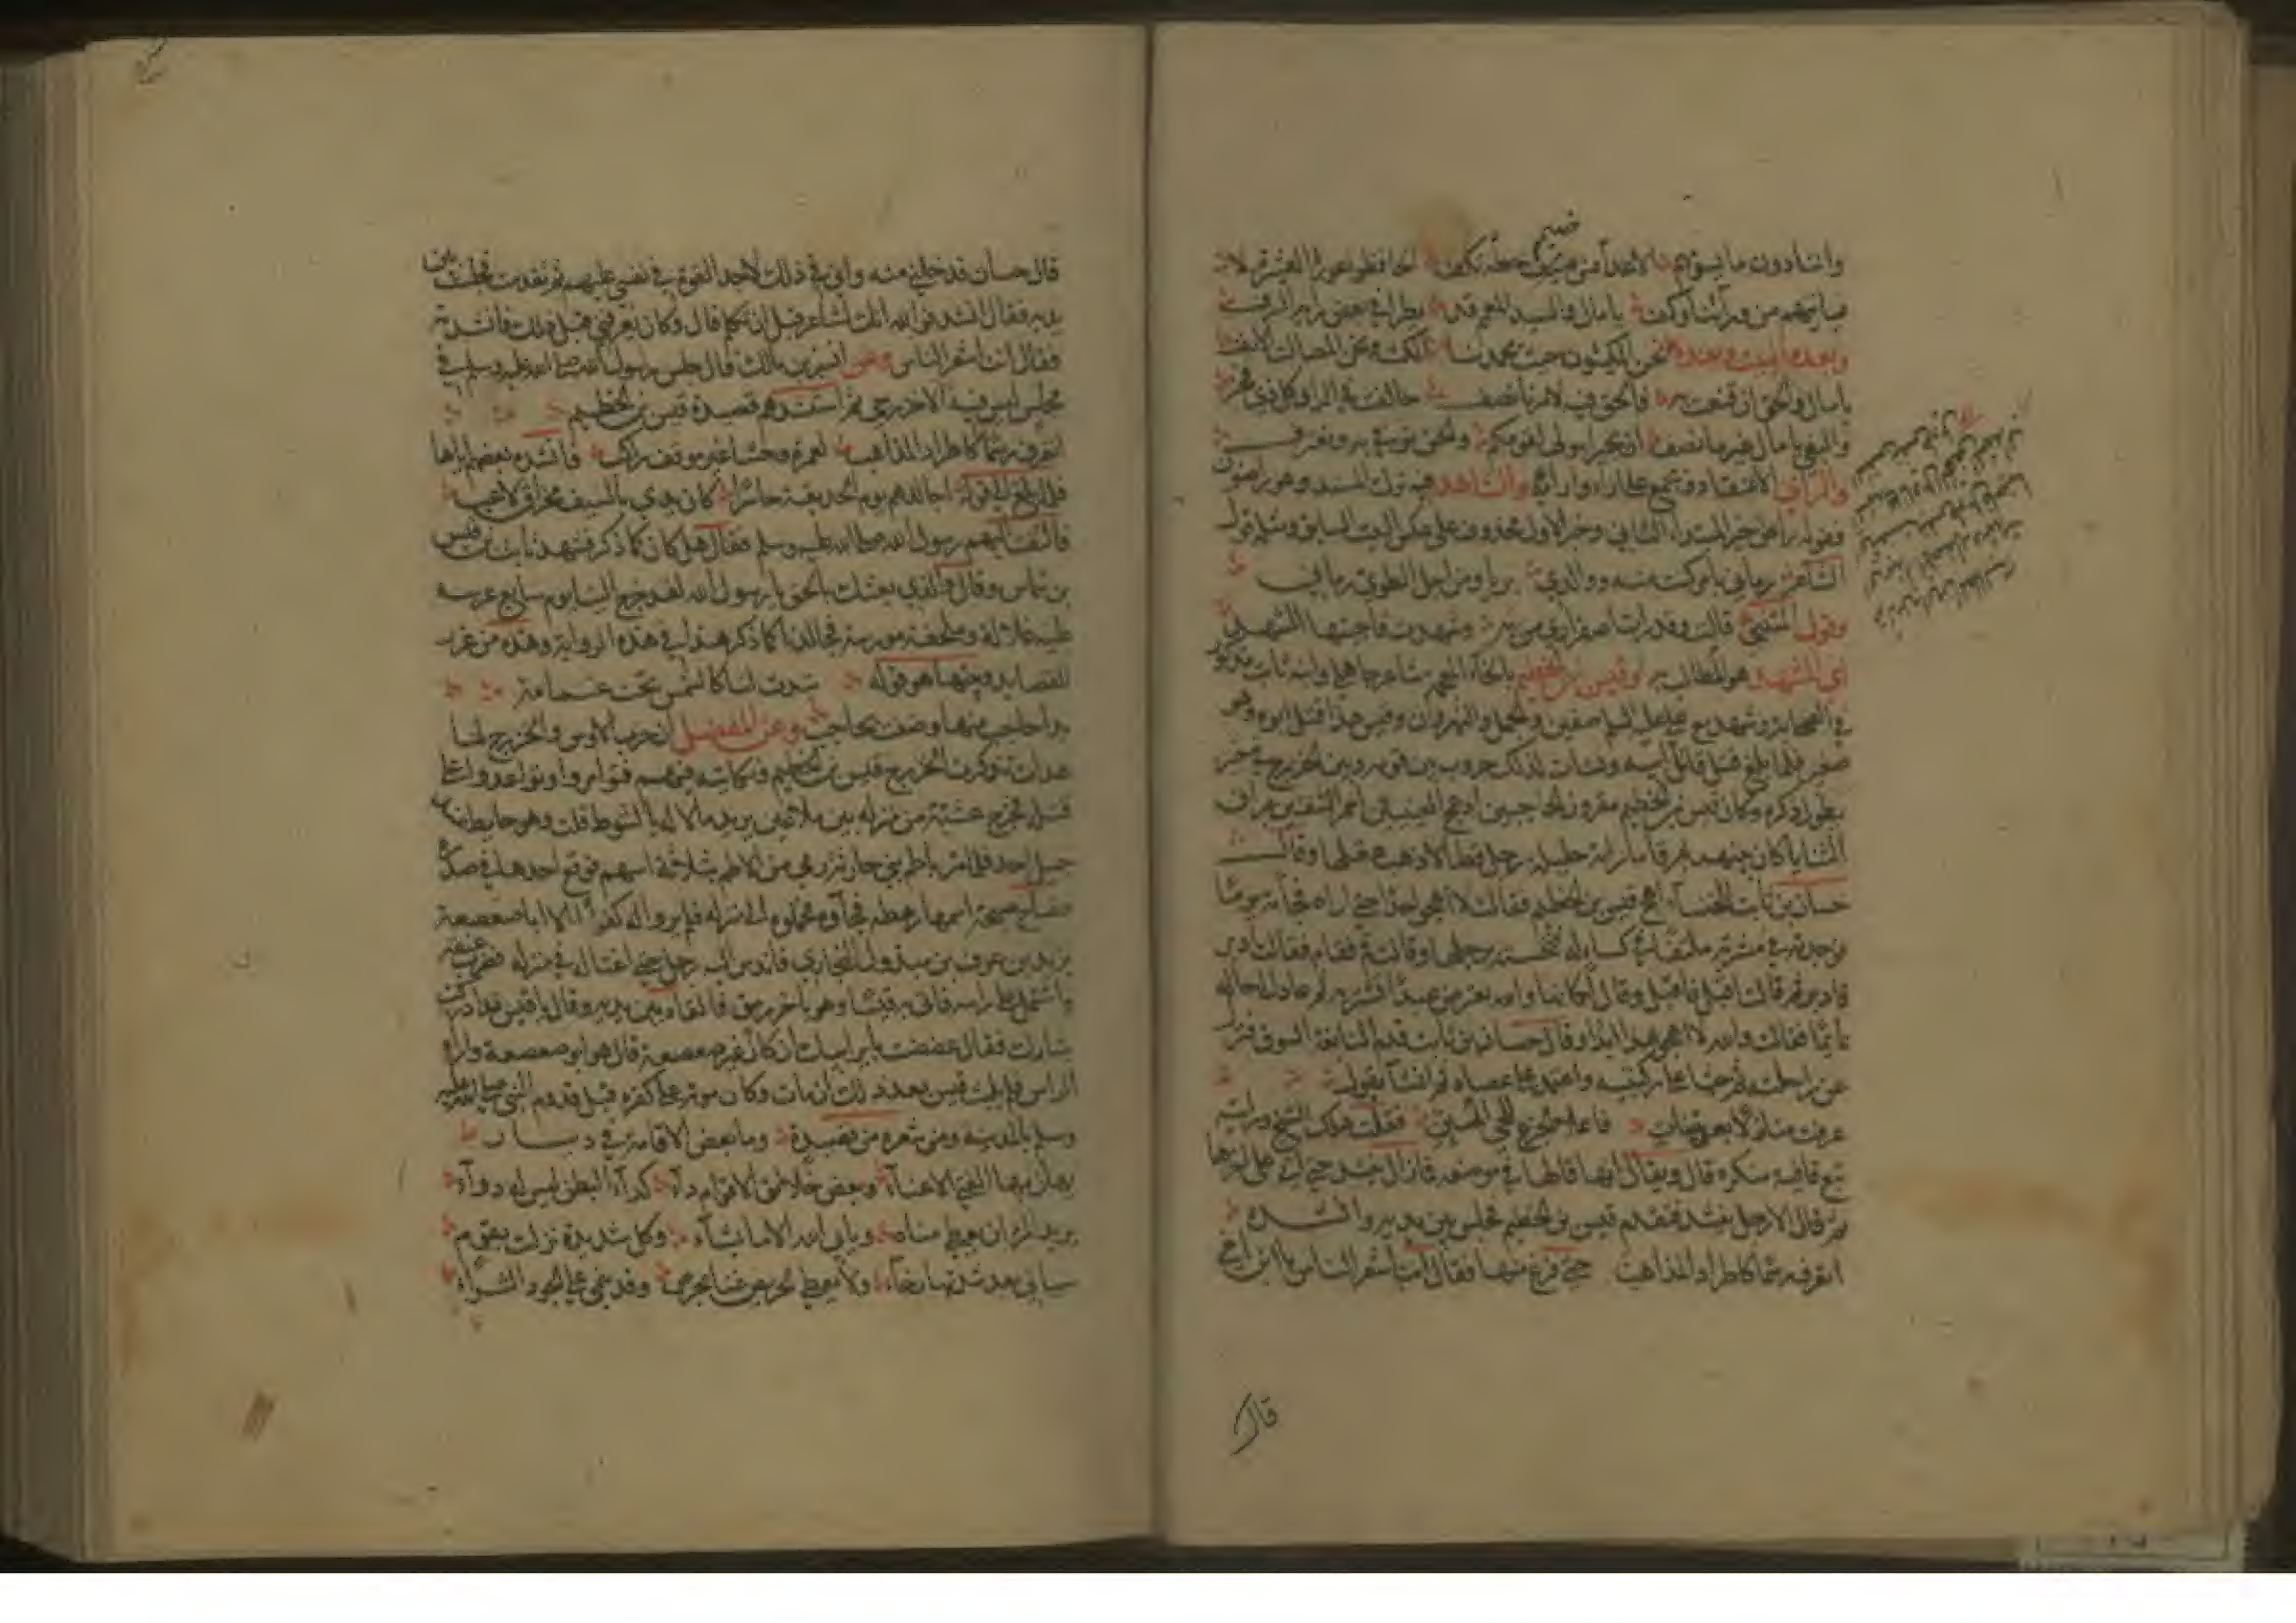 ضيم
قيامهم من ورائنا وكف يا مال والسيد المعمم قد يطرا في بعض رأيه السرف
وبعده البيت وبعده نحن المكيثون حيث يحمد نا المكث ونحن المصالت الأنف
يا مال والحق ان قنعت به فالحق فيه لامرنا نصف خالفت في الراى كل ذي فخر
والبغي يا مال غير ما تصف ان بجيرا مولى لقومكم والحق نوفي به ونعترف
والرأي الاعتقاد ويجمع على آراء وارآئ والشاهد فيه ترك المسند وهو راضون
فقوله راض خبر المبتداء الثاني وخبر الاول محذوف على عكس البيت السابق ومثله قول
الشاعر رماني بامر كنت منه ووالدي بريا ومن اجل الطوي رماني
وقول المتنبي قالت وقد رات اصفراري من به وتنهدت فاجبتها المتنهد
اي المتنهد هو المطالب به وقيس بن الخطيم بالخاء المعجمة شاعر جاهلي وابنه ثابت مذكور
في الصحابة وشهد مع علي عليه السلام صفين والجمل والنهروان وقيس هذا قتل ابوه وهو
صغير فلما بلغ قتل قاتل ابيه ونشات لذلك حروب بين قومه وبين الخزرج في خبر
يطول ذكره وكان قيس بن الخطيم مقرون الحاجبين ادعج العينين احمر الشفتين براق
الثنايا كان بينهما برقا ما راته حليلة رجل قط الا ذهب عقلها وقال
حسان بن ثابت للخنساء اهجي قيس بن الخطيم فقالت لا اهجو احدا حتى اراه فجاءته يوما
فوجدته في مشرقة ملتفا في كساء له فنخسته برجلها وقالت قم فقام فقالت ادبر
فادبر ثم قالت اقبل فاقبل وقال كانها والله تعترض عبدا تشتريه ثم عاد الى حاله
نائما فقالت والله لا اهجو هذا ابدا وقال حسان بن ثابت قدم النابغة السوق فنزل
عن راحلته ثم جثا على ركبتيه واعتمد على عصاه ثم انشا يقول
عرفت منازلا بعريتنات فاعلى الجزع للحي المبن فقلت هلك الشيخ ورايته
تبع قافية منكرة قال ويقال انها قالها في موضعه فما زال ينشد حتى اتى على اخرها
ثم قال الا رجل ينشد فتقدم قيس بن الخطيم فجلس بين يديه وانشده
اتعرف رسما كاطراد المذاهب حتى فرغ منها فقال انت اشعر الناس يا ابن اخي
قال
قال حسان فدخلني منه واني في ذلك لاجد القوة في نفسي عليهم ثم تقدمت فجلست بين
يديه فقال انشد فوالله انك لشاعر قبل ان تتكلم قال وكان يعرفني قبل ذلك فانشدته
فقال انت اشعر الناس وعن انس بن مالك قال جلس رسول الله صلى الله عليه وسلم في
مجلس ليس فيه الا خزرجي ثم استنشدهم قصيدة قيس بن الخطيم
اتعرف رسما كاطراد المذاهب لعمرة وحشا غير موقف راكب فانشده بعضهم اياها
فلما بلغ الى قوله اجالدهم يوم الحديقة حاسرا كان يدي بالسيف مخراق لاعب
فالتفت اليهم رسول الله صلى الله عليه وسلم فقال هل كان كما ذكر فشهد ثابت بن قيس
بن شماس وقال والذي بعثك بالحق يا رسول الله لقد خرج الينا يوم سابع عرسه
عليه غلالة وملحفة مورسة فجالدنا كما ذكر هذا في هذه الرواية وهذه من غرر
القصايد ومنها هو قوله تبدت لنا كالشمس تحت غمامة
بدا حاجب منها وضنت بحاجب وعن المفضل ان حرب الاوس والخزرج لما
هدات تذكرت الخزرج قيس بن الخطيم ونكايته فيهم فتوامروا وتواعدوا على
قتله فخرج عشية من منزله بين ملاتين يريد مالا له بالشوط قلت وهو حايط عند
جبل احد فلما مر باطم بني حارثة رمي من الاطم بثلاثة اسهم فوقع احدها في صدره
فصاح صيحة اسمعها رهطه فجآوه فحملوه الى منزله فلم يروا له كفؤا الا ابا صعصعة
يزيد بن عوف بن مبذول النجاري فاندس اليه رجل حتى اغتاله في منزله فضرب عنقه
واشتمل على راسه فاتى به قيسا وهو باخر رمق فالقاه بين يديه وقال يا قيس قد ادركت
بثارك فقال عضضت باير ابيك ان كان غير ابي صعصعة قال هو ابو صعصعة واراه
الراس فلم يلبث قيس بعد ذلك ان مات وكان موته على كفره قبل قدوم النبي صلى الله عليه
وسلم بالمدينة ومن شعره من قصيدة وما بعض الاقامة في ديار
يهان بها الفتى الا عناء وبعض خلائق الاقوام داء كداء البطن ليس له دوآء
يريد المرء ان يعطى مناه ويابى الله الا ما يشآء وكل شديدة نزلت بقوم
سياتي بعد شدتها رخآء ولا يعطى الحريص غنى بحرص وقد ينمى على الجود الثراء